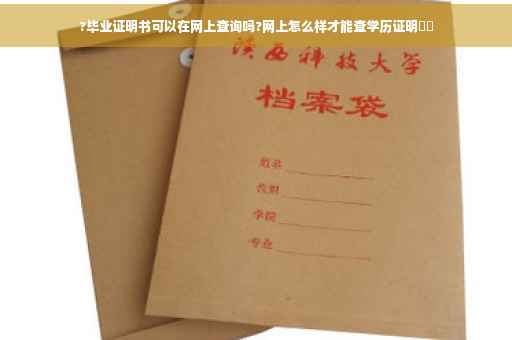 ?毕业证明书可以在网上查询吗?网上怎么样才能查学历证明
陕西科技大学
档案袋
姓名
学院
专业